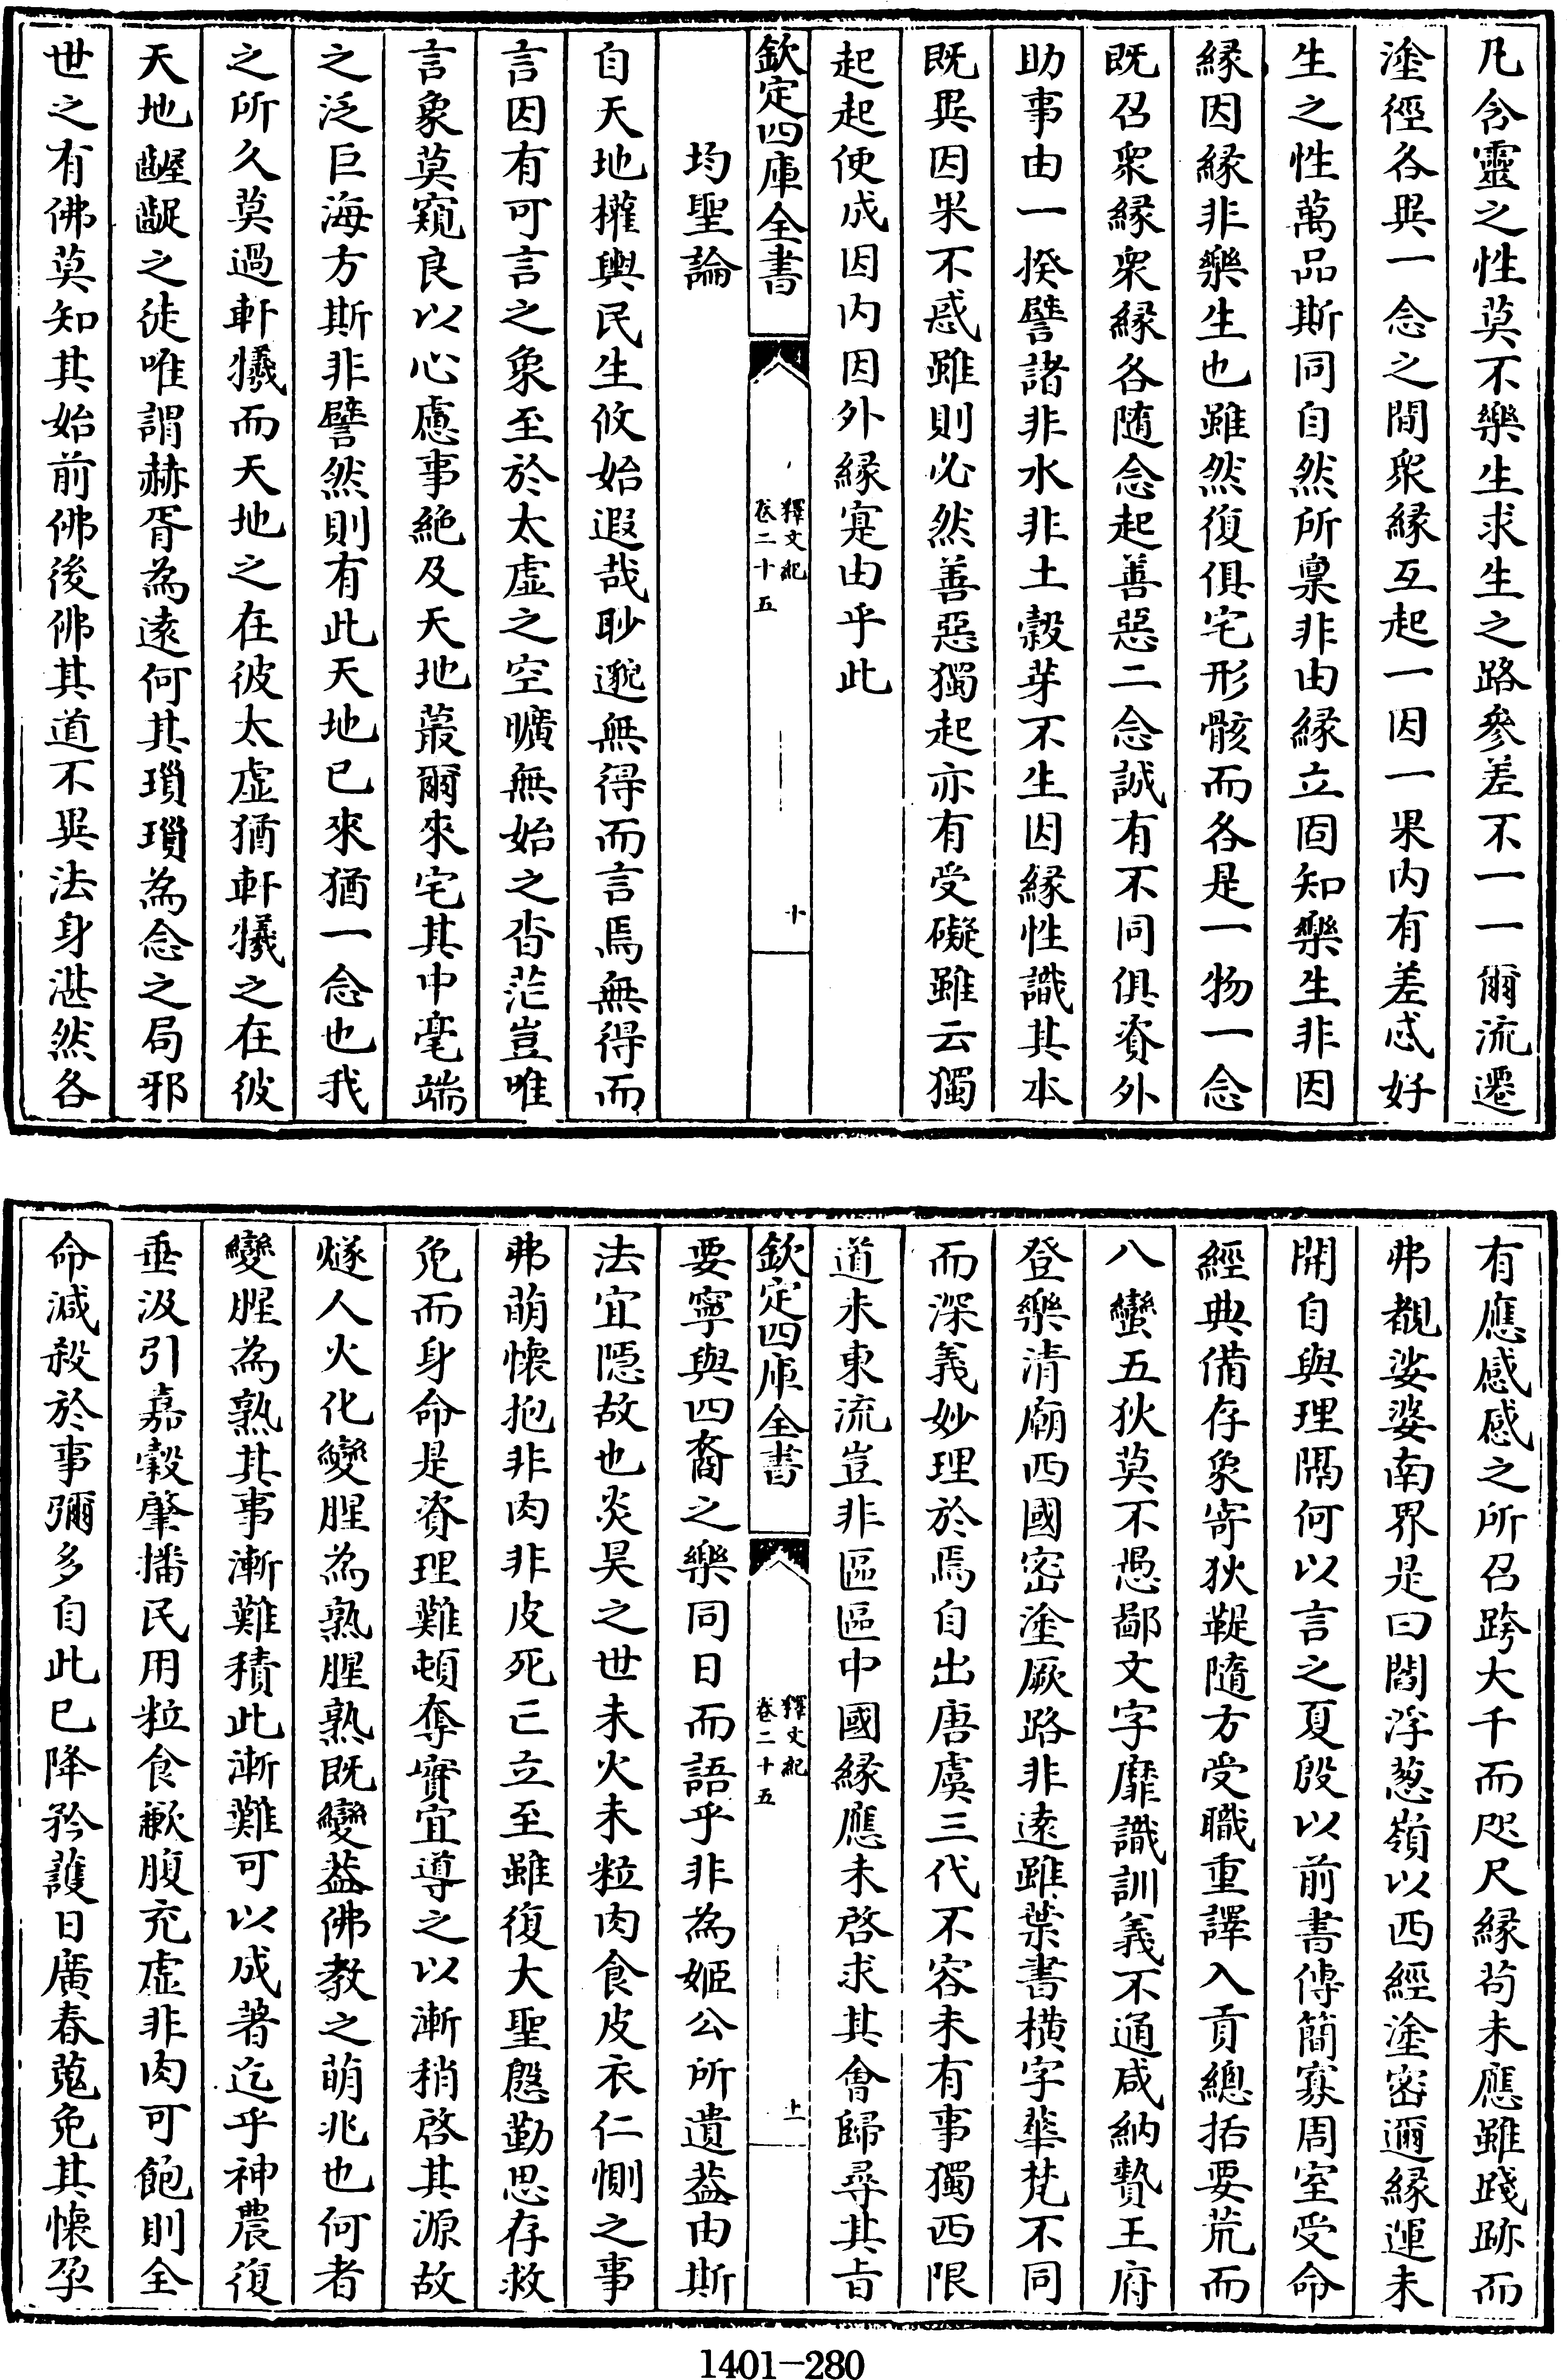 凡含靈之性莫不樂生求生之路參差不一一爾流遷
塗徑各異一念之間衆縁互起一因一果内有差忒好
生之性萬品斯同自然所禀非由縁立固知樂生非因
縁因縁非樂生也雖然復俱宅形骸而各是一物一念
既召衆縁衆縁各随念起善惡二念誠有不同俱資外
助事由一揆譬諸非水非土穀芽不生因縁性識其本
既異因果不惑雖則必然善惡獨起亦有受礙雖云獨
起起便成因内因外縁寔由乎此
欽定四庫全書
釋文紀
卷二十五
十
均聖論
自天地權輿民生攸始遐哉眇邈無得而言焉無得而
言因有可言之象至於太虚之空曠無始之杳茫豈唯
言象莫窺良以心慮事絶及天地蕞爾來宅其中毫端
之泛巨海方斯非譬然則有此天地已來猶一念也我
之所久莫過軒犧而天地之在彼太虚猶軒犧之在彼
天地齷齪之徒唯謂赫胥為遠何其瑣瑣為念之局邪
世之有佛莫知其始前佛後佛其道不異法身湛然各
有應感感之所召跨大千而咫尺縁苟未應雖踐跡而
弗覩娑婆南界是曰閻浮葱嶺以西經塗密邇縁運未
開自與理隔何以言之夏殷以前書傳簡寡周室受命
經典備存象寄狄鞮隨方受職重譯入貢總括要荒而
八蠻五狄莫不愚鄙文字靡識訓義不通咸納贄王府
登樂清廟西國密塗厥路非遠雖葉書横字華梵不同
而深義妙理於焉自出唐虞三代不容未有事獨西限
道未東流豈非區區中國縁應未啓求其會歸尋其旨
欽定四庫全書
釋文紀
卷二十五
十一
要寧與四裔之樂同日而語乎非為姬公所遺葢由斯
法宜隠故也炎昊之世未火未粒肉食皮衣仁惻之事
弗萌懐抱非肉非皮死亡立至雖復大聖慇勤思存救
免而身命是資理難頓奪實宜導之以漸稍啓其源故
燧人火化變腥為熟腥熟既變葢佛教之萌兆也何者
變腥為熟其事漸難積此漸難可以成著迄乎神農復
垂汲引嘉穀肇播民用粒食歉腹充虚非肉可飽則全
命減殺於事彌多自此已降矜護日廣春蒐免其懐孕
1401-280